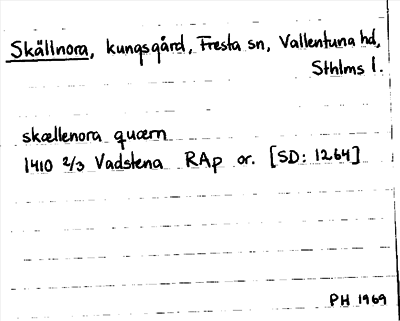 Skällnora, kungsgård, Fresta sn, Vallentuna hd,
Sthlms l.
skællenora quærn
1410 2/3 Vadstena RAp or. [SD: 1264]
PH 1969